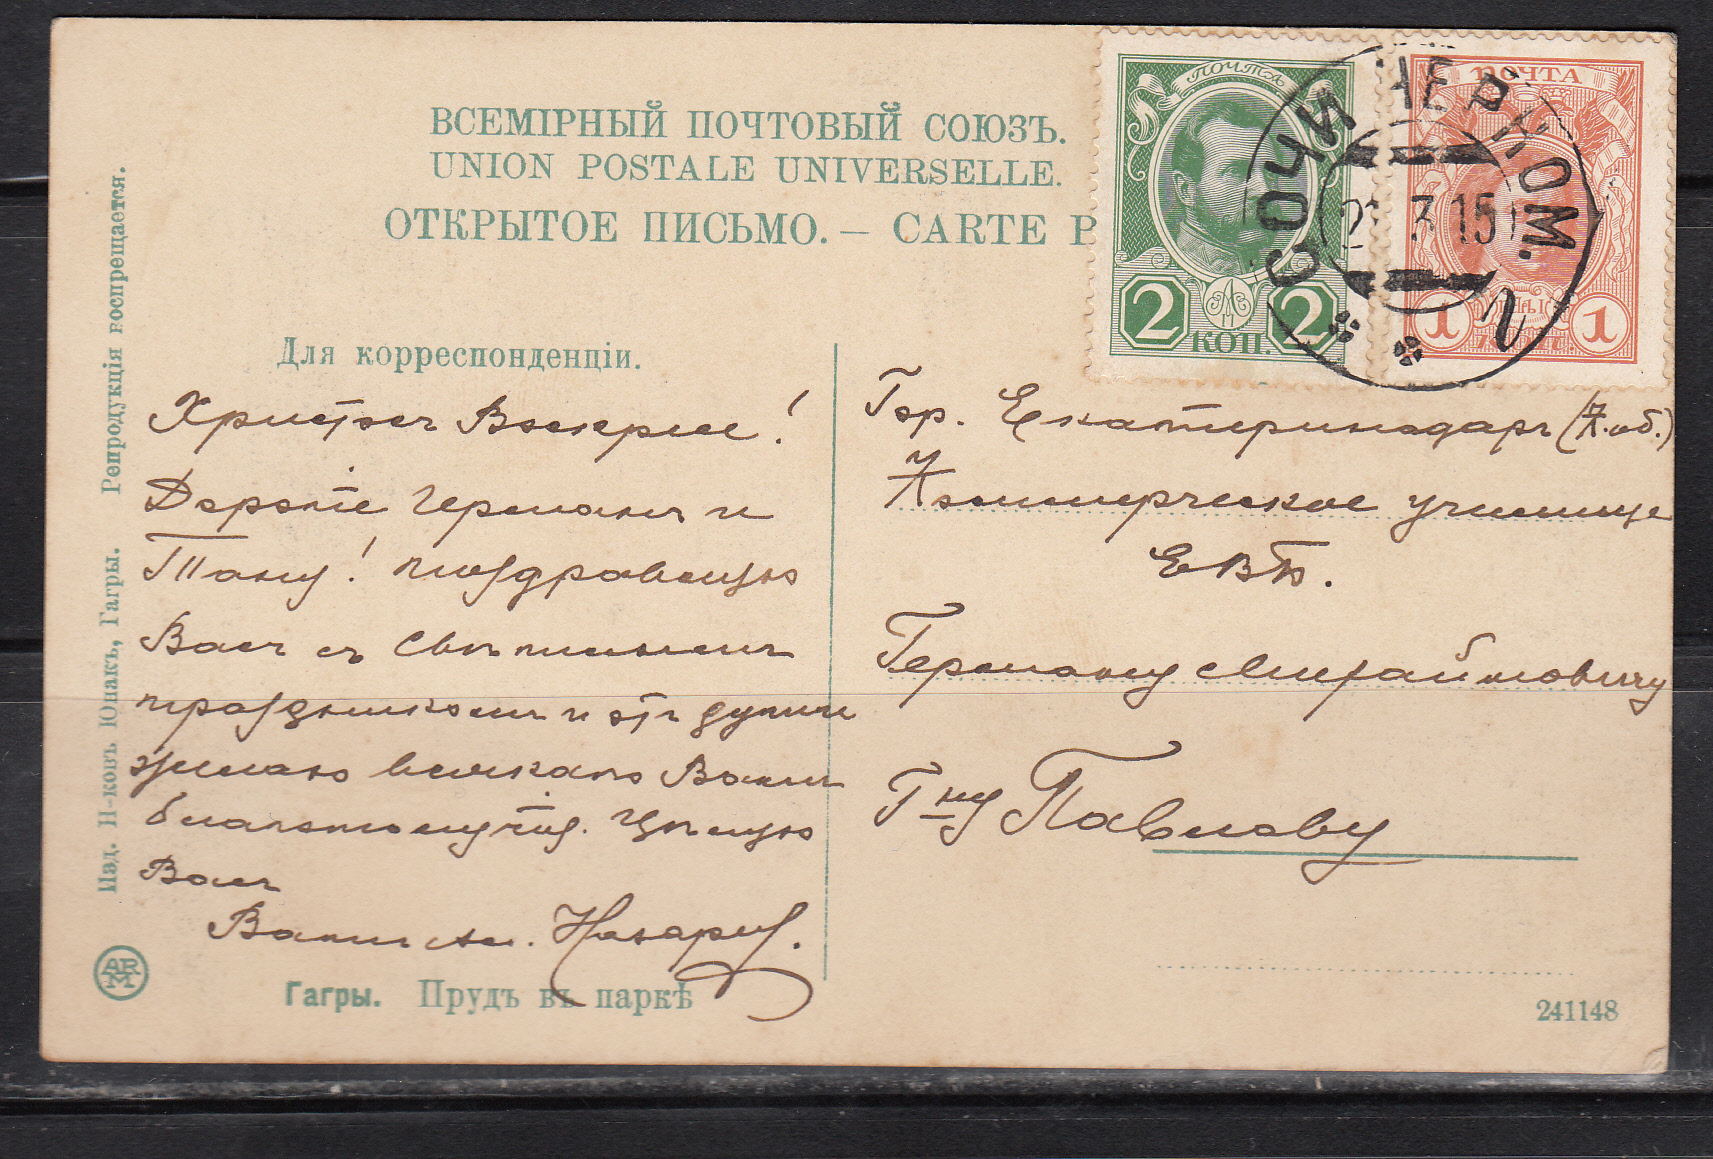 ВСЕМІРНЫЙ ПОЧТОВЫЙ СОЮЗЪ.
UNION POSTALE UNIVERSELLE.
ОТКРЫТОЕ ПИСЬМО. — CARTE P
ПОЧТА
2 2
КОП.
ПОЧТА
1 1
СОЧИ ЧЕРНОМ.
3 15
г
Для корреспонденціи.
Христосъ Воскресе!
Дорогіе Германъ и
Тану! поздравляю
Васъ съ Свѣтлымъ
праздникомъ и отъ души
желаю всякаго Вамъ
благополучія. Цѣлую
Васъ
Вашъ
Гор. Екатеринодаръ (К. об.)
Коммерческое училище
ЕВБ.
Герману
Г-ну Павлову
Гагры. Прудъ въ паркѣ
241148
Изд. П-ковъ Юнакъ, Гагры. Репродукція воспрещается.
ARM